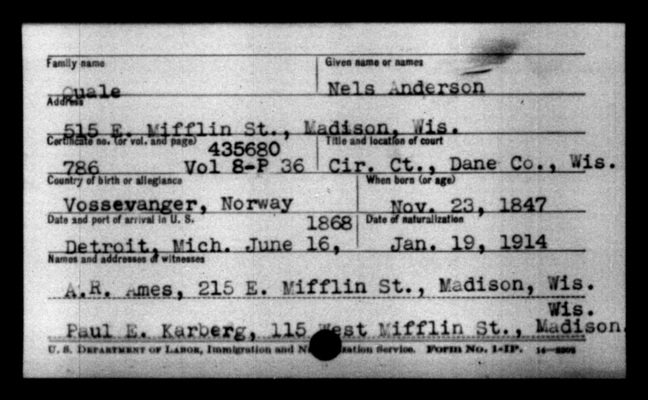 Family name Given name or names
Quale Nels Anderson
Address
515 E. Mifflin St., Madison, Wis.
Certificate no. (or vol. and page) 435680 Title and location of court
786 Vol 8-P 36 Cir. Ct., Dane Co., Wis.
Country of birth or allegiance When born (or age)
Vossevanger, Norway Nov. 23, 1847
Date and port of arrival in U. S. 1868 Date of naturalization
Detroit, Mich. June 16, Jan. 19, 1914
Names and addresses of witnesses
A.R. Ames, 215 E. Mifflin St., Madison, Wis.
Wis.
Paul E. Karberg, 115 West Mifflin St., Madison,
U. S. Department of Labor, Immigration and Naturalization Service. Form No. 1-IP.